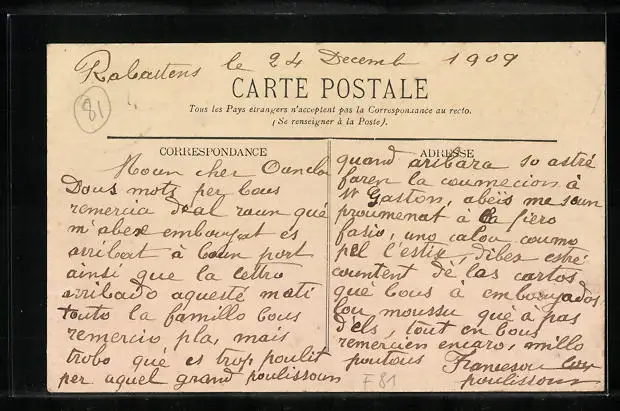 Rabastens le 24 Decemb 1909
81
CARTE POSTALE
Tous les Pays étrangers n'acceptent pas la Correspondance au recto.
(Se renseigner à la Poste).
CORRESPONDANCE
Moun cher Ouncle
Dous mots per bous
remercia d'al raun qué
m'abex embouyat es
arribat à boun port
ainsi que la lettro
arribado aquesté mati
touto la famillo bous
remercio pla, mais
trobo qué es trop poulit
per aquel grand poulissoun
ADRESSE
quand arribara so astré
faren la coumecion à
St Gaston, abéis me soun
proumenat à la fiero
fasio, uno calou coumo
pel l'estiu, dibes estré
countent dé las cartos
qué bous à embouyados
lou moussu qué à pas
d'els, tout en bous
remercien encaro, millo
poutous Francesou
poulissoun
F 81